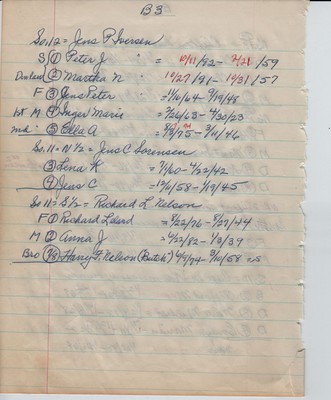 B3
So.12 = Jens P. Iversen
S ① Peter J = 10/11/92 - 2/21/59
② Martha N = 10/27/91 - 10/31/57
F ③ Jens Peter = 11/10/64 - 9/19/48
1st M ④ Inger Marie = 7/26/63 - 4/30/23
⑤ Ella A = /75 - 3/10/46
So.11 = N 1/2 = Jens C Sorensen
③ Lena K = 7/1/60 - 4/22/42
④ Jens C = 12/11/58 - 1/19/45
So 11 = S 1/2 = Richard L. Nelson
F ① Richard Lard = 8/22/76 - 8/27/44
M ② Anna J = 4/22/82 - 1/3/39
Bro Harry F. Nelson ("Butch") 4/9/74 - 3/10/58